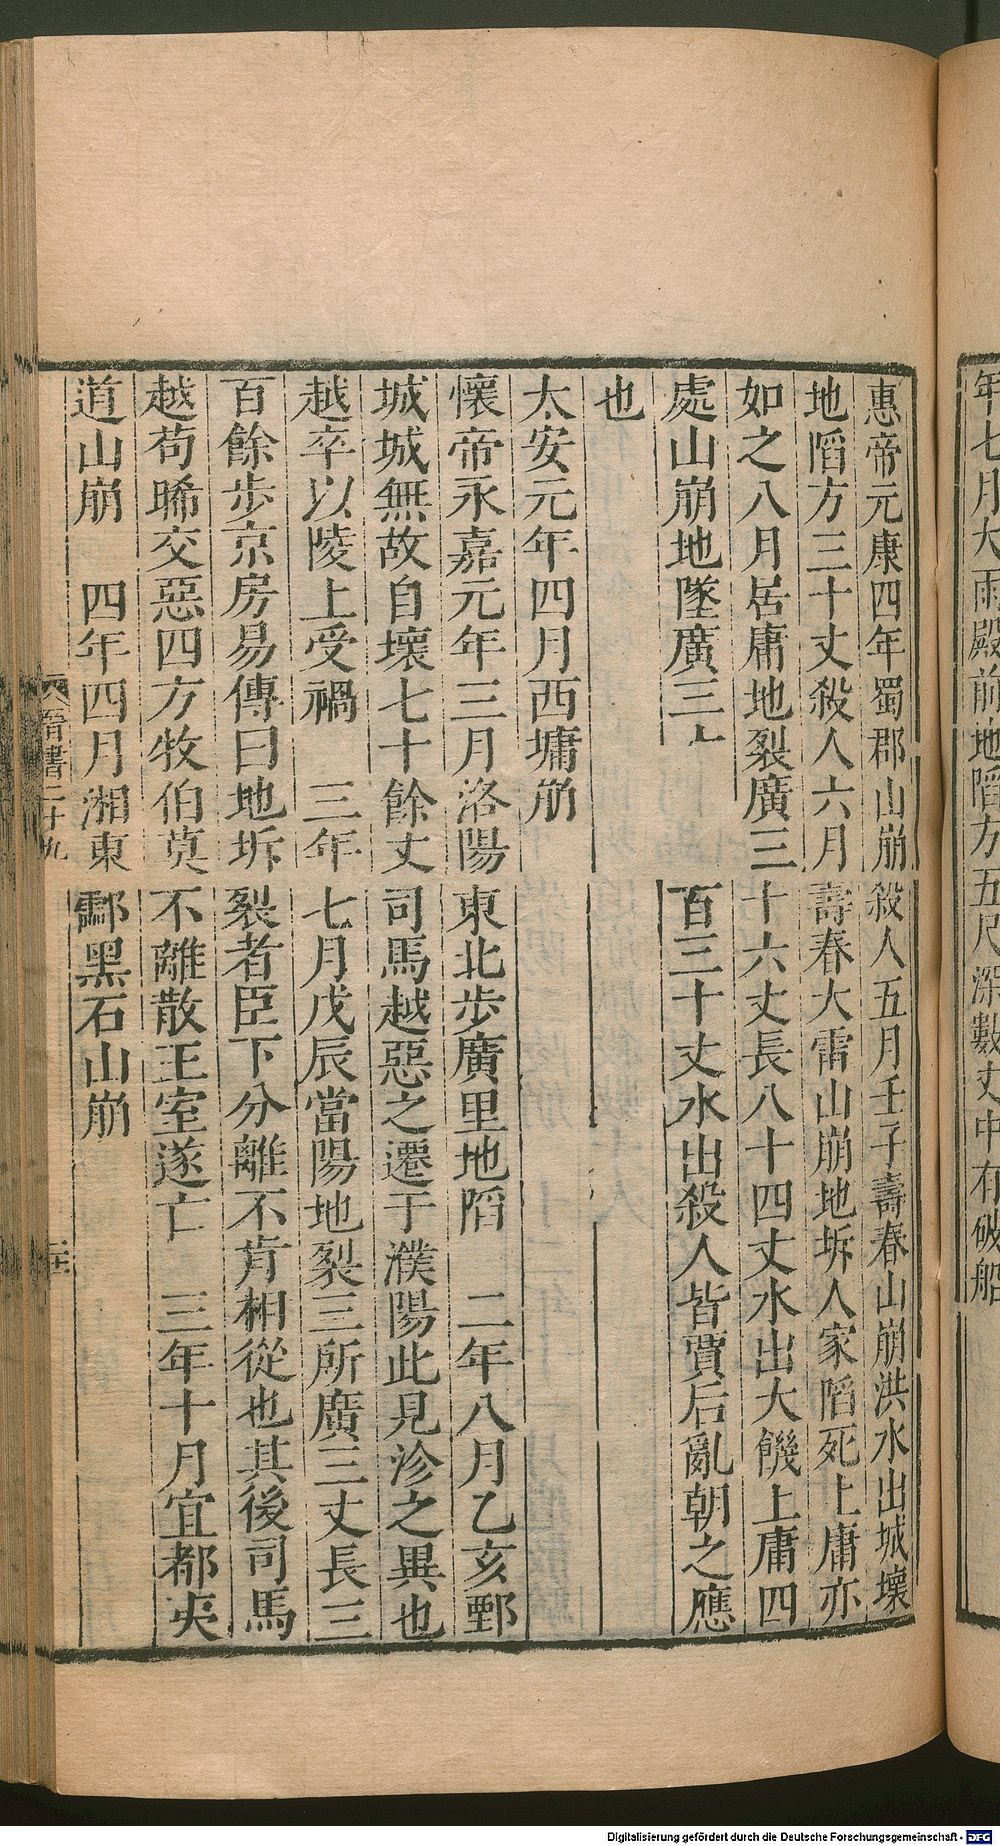 年七月大雨殿前地陷方五尺深數丈中有破船
惠帝元康四年蜀郡山崩殺人五月壬子壽春山崩洪水出城壞
地陷方三十丈殺人六月壽春大雷山崩地坼人家陷死上庸亦
如之八月居庸地裂廣三十六丈長八十四丈水出大饑上庸四
處山崩地墜廣三十百三十丈水出殺人皆賈后亂朝之應
也
太安元年四月西墉崩
懷帝永嘉元年三月洛陽東北步廣里地陷 二年八月乙亥鄄
城城無故自壞七十餘丈司馬越惡之遷于濮陽此見沴之異也
越卒以陵上受禍 三年七月戊辰當陽地裂三所廣三丈長三
百餘步京房易傳曰地坼裂者臣下分離不肯相從也其後司馬
越苟晞交惡四方牧伯莫不離散王室遂亡 三年十月宜都夷
道山崩 四年四月湘東酃黑石山崩
晉書二十九
二十
Digitalisierung gefördert durch die Deutsche Forschungsgemeinschaft - DFG